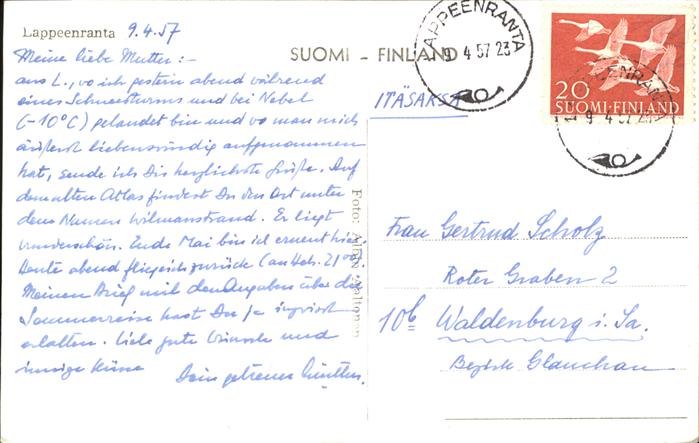 Lappeenranta 9.4.57
Meine liebe Mutter:-
aus L., wo ich gestern abend während
eines Schneesturms und bei Nebel
(-10°C) gelandet bin und wo man mich
äußerst liebenswürdig aufgenommen
hat, sende ich Dir herzlichste Grüße. Auf
dem alten Atlas findest Du den Ort unter
dem Namen Wilmanstrand. Er liegt
wunderschön. Ende Mai bin ich erneut hier.
Heute abend fliege ich zurück (an Hels. 21°°).
Meinen Brief mit den Angaben über die
Sommerreise hast Du ja inzwischen
erhalten. Viele gute Wünsche und
innige Küsse
Dein getreuer Günther.
SUOMI - FINLAND
ITÄSAKSA
Foto:
LAPPEENRANTA
9 4 57 23
20
SUOMI-FINLAND
9 4 57 23
Frau Gertrud Scholz
Roter Graben 2
10b Waldenburg i. Sa.
Bezirk Glauchau